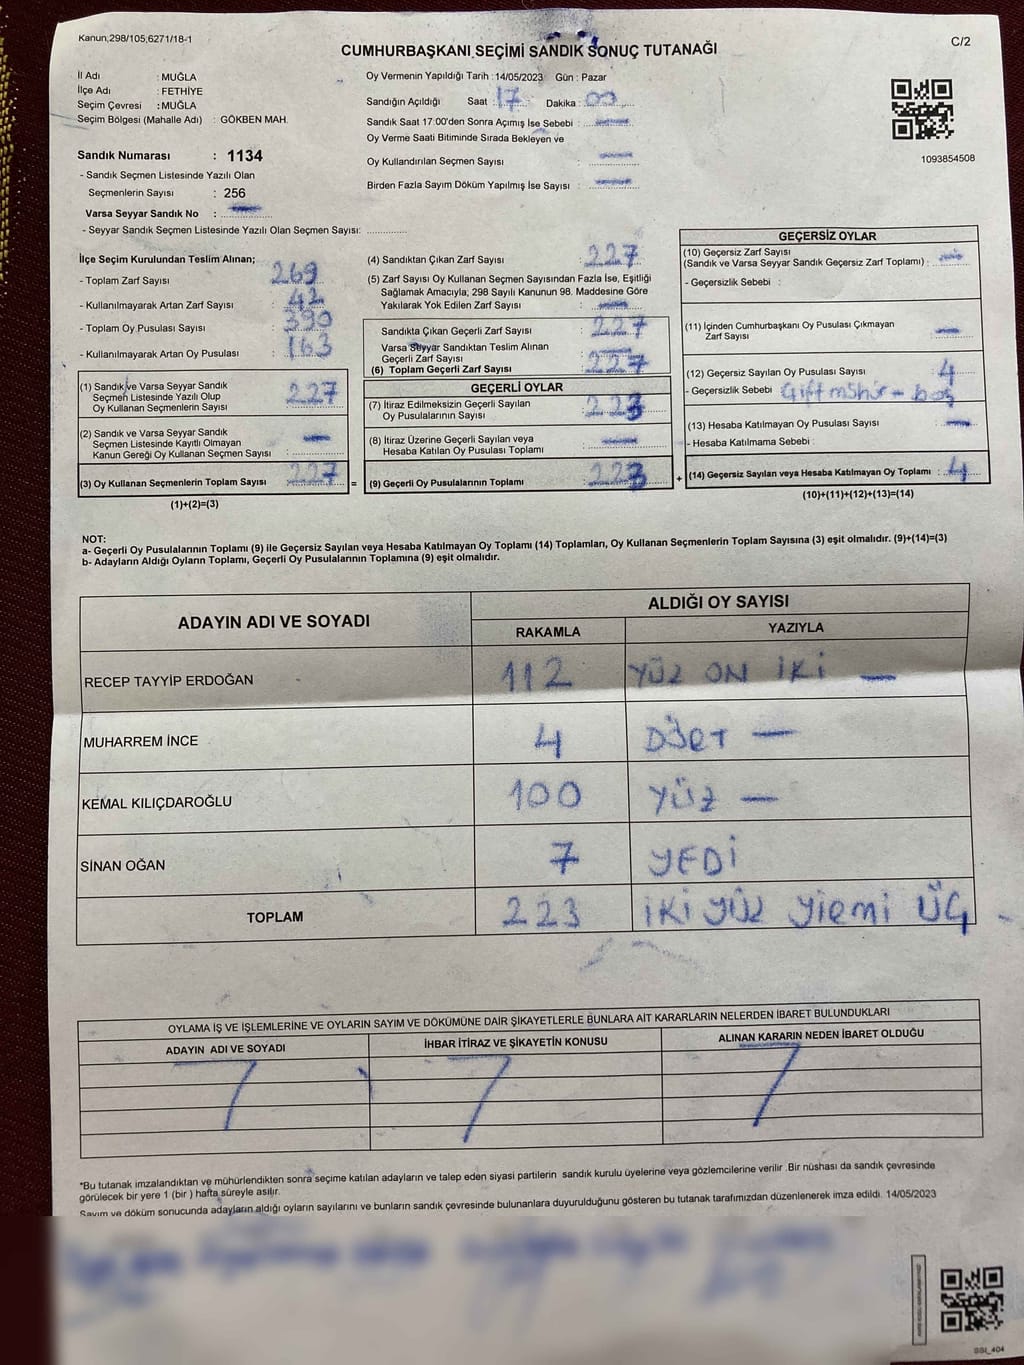 Kanun,298/105,6271/18-1
C/2
CUMHURBAŞKANI SEÇİMİ SANDIK SONUÇ TUTANAĞI
İl Adı : MUĞLA
İlçe Adı : FETHİYE
Seçim Çevresi : MUĞLA
Seçim Bölgesi (Mahalle Adı) : GÖKBEN MAH.
Sandık Numarası : 1134
- Sandık Seçmen Listesinde Yazılı Olan
Seçmenlerin Sayısı : 256
Varsa Seyyar Sandık No : —
- Seyyar Sandık Seçmen Listesinde Yazılı Olan Seçmen Sayısı: ..............
Oy Vermenin Yapıldığı Tarih : 14/05/2023 Gün : Pazar
Sandığın Açıldığı Saat : 17 Dakika : 00
Sandık Saat 17:00'den Sonra Açımış İse Sebebi : —
Oy Verme Saati Bitiminde Sırada Bekleyen ve
Oy Kullandırılan Seçmen Sayısı : —
Birden Fazla Sayım Döküm Yapılmış İse Sayısı : —
1093854508
İlçe Seçim Kurulundan Teslim Alınan;
- Toplam Zarf Sayısı : 269
- Kullanılmayarak Artan Zarf Sayısı : 42
- Toplam Oy Pusulası Sayısı : 390
- Kullanılmayarak Artan Oy Pusulası : 163
(1) Sandık ve Varsa Seyyar Sandık
Seçmen Listesinde Yazılı Olup
Oy Kullanan Seçmenlerin Sayısı : 227
(2) Sandık ve Varsa Seyyar Sandık
Seçmen Listesinde Kayıtlı Olmayan
Kanun Gereği Oy Kullanan Seçmen Sayısı : —
(3) Oy Kullanan Seçmenlerin Toplam Sayısı : 227
(1)+(2)=(3)
=
(4) Sandıktan Çıkan Zarf Sayısı : 227
(5) Zarf Sayısı Oy Kullanan Seçmen Sayısından Fazla İse, Eşitliği
Sağlamak Amacıyla, 298 Sayılı Kanunun 98. Maddesine Göre
Yakılarak Yok Edilen Zarf Sayısı : —
Sandıkta Çıkan Geçerli Zarf Sayısı : 227
Varsa Seyyar Sandıktan Teslim Alınan
Geçerli Zarf Sayısı : —
(6) Toplam Geçerli Zarf Sayısı : 227
GEÇERLİ OYLAR
(7) İtiraz Edilmeksizin Geçerli Sayılan
Oy Pusulalarının Sayısı : 223
(8) İtiraz Üzerine Geçerli Sayılan veya
Hesaba Katılan Oy Pusulası Toplamı : —
(9) Geçerli Oy Pusulalarının Toplamı : 223
+
GEÇERSİZ OYLAR
(10) Geçersiz Zarf Sayısı
(Sandık ve Varsa Seyyar Sandık Geçersiz Zarf Toplamı) : —
- Geçersizlik Sebebi :
(11) İçinden Cumhurbaşkanı Oy Pusulası Çıkmayan
Zarf Sayısı : —
(12) Geçersiz Sayılan Oy Pusulası Sayısı : 4
- Geçersizlik Sebebi Çift mühür - boş
(13) Hesaba Katılmayan Oy Pusulası Sayısı : —
- Hesaba Katılmama Sebebi :
(14) Geçersiz Sayılan veya Hesaba Katılmayan Oy Toplamı : 4
(10)+(11)+(12)+(13)=(14)
NOT:
a- Geçerli Oy Pusulalarının Toplamı (9) ile Geçersiz Sayılan veya Hesaba Katılmayan Oy Toplamı (14) Toplamları, Oy Kullanan Seçmenlerin Toplam Sayısına (3) eşit olmalıdır. (9)+(14)=(3)
b- Adayların Aldığı Oyların Toplamı, Geçerli Oy Pusulalarının Toplamına (9) eşit olmalıdır.
ADAYIN ADI VE SOYADI ALDIĞI OY SAYISI
RAKAMLA YAZIYLA
RECEP TAYYİP ERDOĞAN 112 YÜZ ON İKİ —
MUHARREM İNCE 4 DÖRT —
KEMAL KILIÇDAROĞLU 100 YÜZ —
SİNAN OĞAN 7 YEDİ
TOPLAM 223 İKİ YÜZ YİRMİ ÜÇ
OYLAMA İŞ VE İŞLEMLERİNE VE OYLARIN SAYIM VE DÖKÜMÜNE DAİR ŞİKAYETLERLE BUNLARA AİT KARARLARIN NELERDEN İBARET BULUNDUKLARI
ADAYIN ADI VE SOYADI İHBAR İTİRAZ VE ŞİKAYETİN KONUSU ALINAN KARARIN NEDEN İBARET OLDUĞU
*Bu tutanak imzalandıktan ve mühürlendikten sonra seçime katılan adayların ve talep eden siyasi partilerin sandık kurulu üyelerine veya gözlemcilerine verilir .Bir nüshası da sandık çevresinde
görülecek bir yere 1 (bir ) hafta süreyle asılır.
Sayım ve döküm sonucunda adayların aldığı oyların sayılarını ve bunların sandık çevresinde bulunanlara duyurulduğunu gösteren bu tutanak tarafımızdan düzenlenerek imza edildi. 14/05/2023